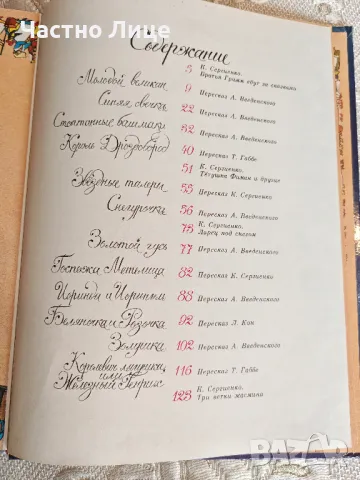 Частно Лице
Содержание
5 К. Сергиенко. Братья Гримм едут за сказками
Молодой великан 9 Пересказ А. Введенского
Синяя свечка 22 Пересказ А. Введенского
Стоптанные башмаки 32 Пересказ А. Введенского
Король Дроздобород 40 Пересказ Т. Габбе
51 К. Сергиенко. Тётушка Фиман и другие
Звёздные талеры 55 Пересказ К. Сергиенко
Снегурочка 56 Пересказ А. Введенского
73 К. Сергиенко. Ларец под снегом
Золотой гусь 77 Пересказ А. Введенского
Госпожа Метелица 82 Пересказ К. Сергиенко
Иоринда и Иорингель 88 Пересказ А. Введенского
Беляночка и Розочка 92 Пересказ Л. Кон
Золушка 102 Пересказ А. Введенского
Королевич-лягушка, или Железный Генрих 116 Пересказ Т. Габбе
123 К. Сергиенко. Три ветки жасмина
bazar